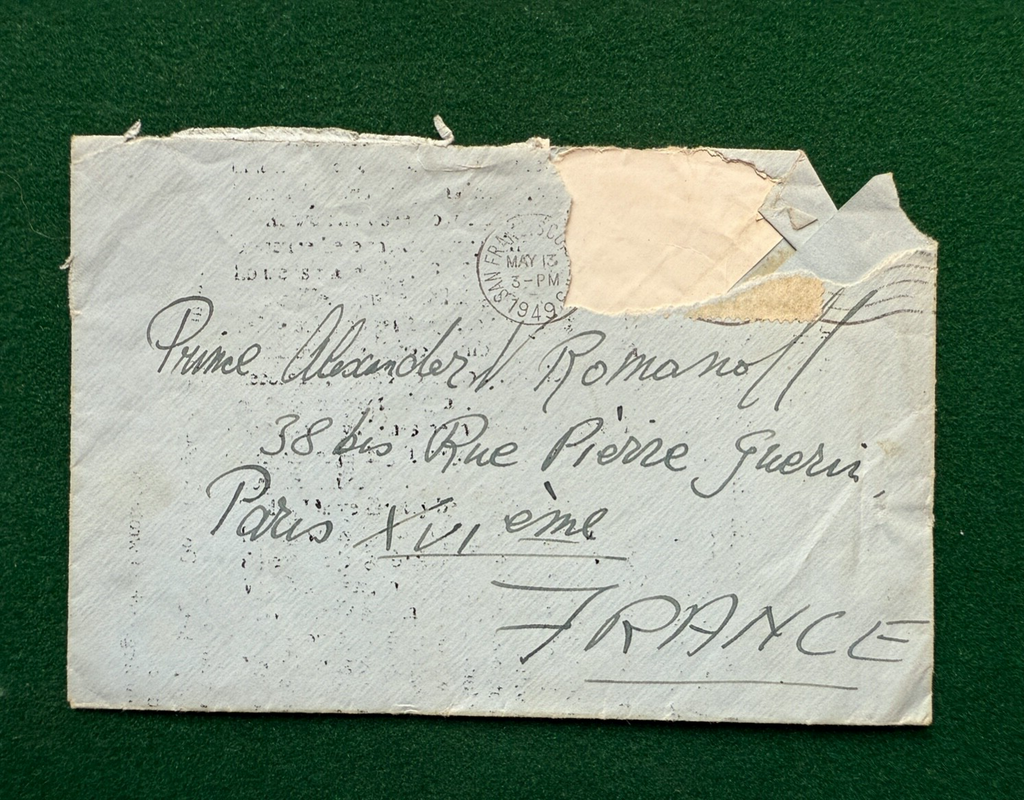 SAN FRANCISCO
MAY 13
3-PM
1949
Prince Alexander Romanoff
38 bis Rue Pierre Guerin,
Paris XVI ème
FRANCE